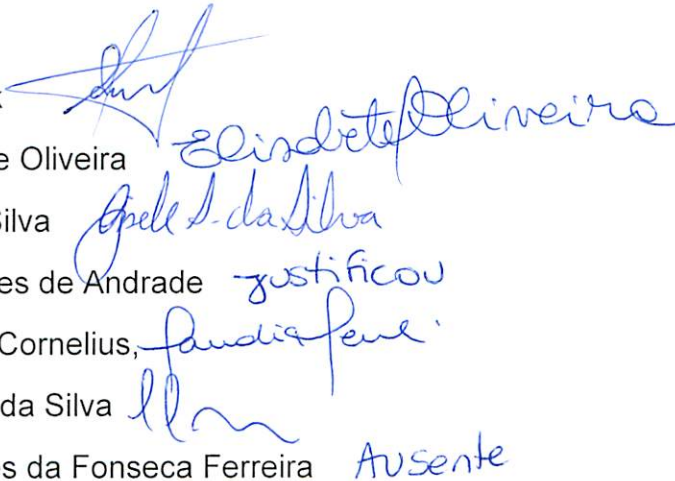 e Oliveira Elisabete Oliveira
Silva Gisele S. da Silva
es de Andrade Justificou
Cornelius, Claudia
da Silva
es da Fonseca Ferreira Ausente